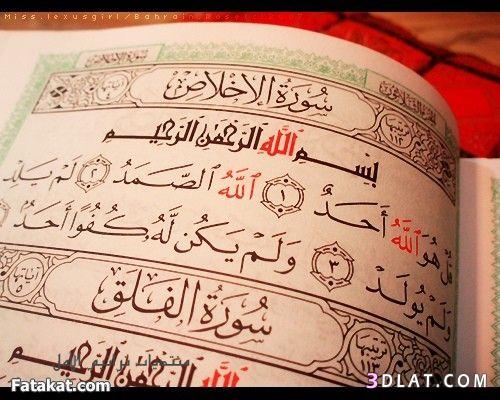 Miss.lexusgirl/Bahrain
سورة الإخلاص
سُورَةُ الإِخْلَاصِ
بِسْمِ اللَّهِ الرَّحْمَٰنِ الرَّحِيمِ
قُلْ هُوَ اللَّهُ أَحَدٌ ١ اللَّهُ الصَّمَدُ ٢ لَمْ يَلِدْ
وَلَمْ يُولَدْ ٣ وَلَمْ يَكُن لَّهُ كُفُوًا أَحَدٌ
آياتها ٥
سُورَةُ الفَلَقِ
ترتيبها ١١٣
اللَّهِ الرَّحْمَٰنِ الرَّحِيمِ
Fatakat.com
3DLAT.COM